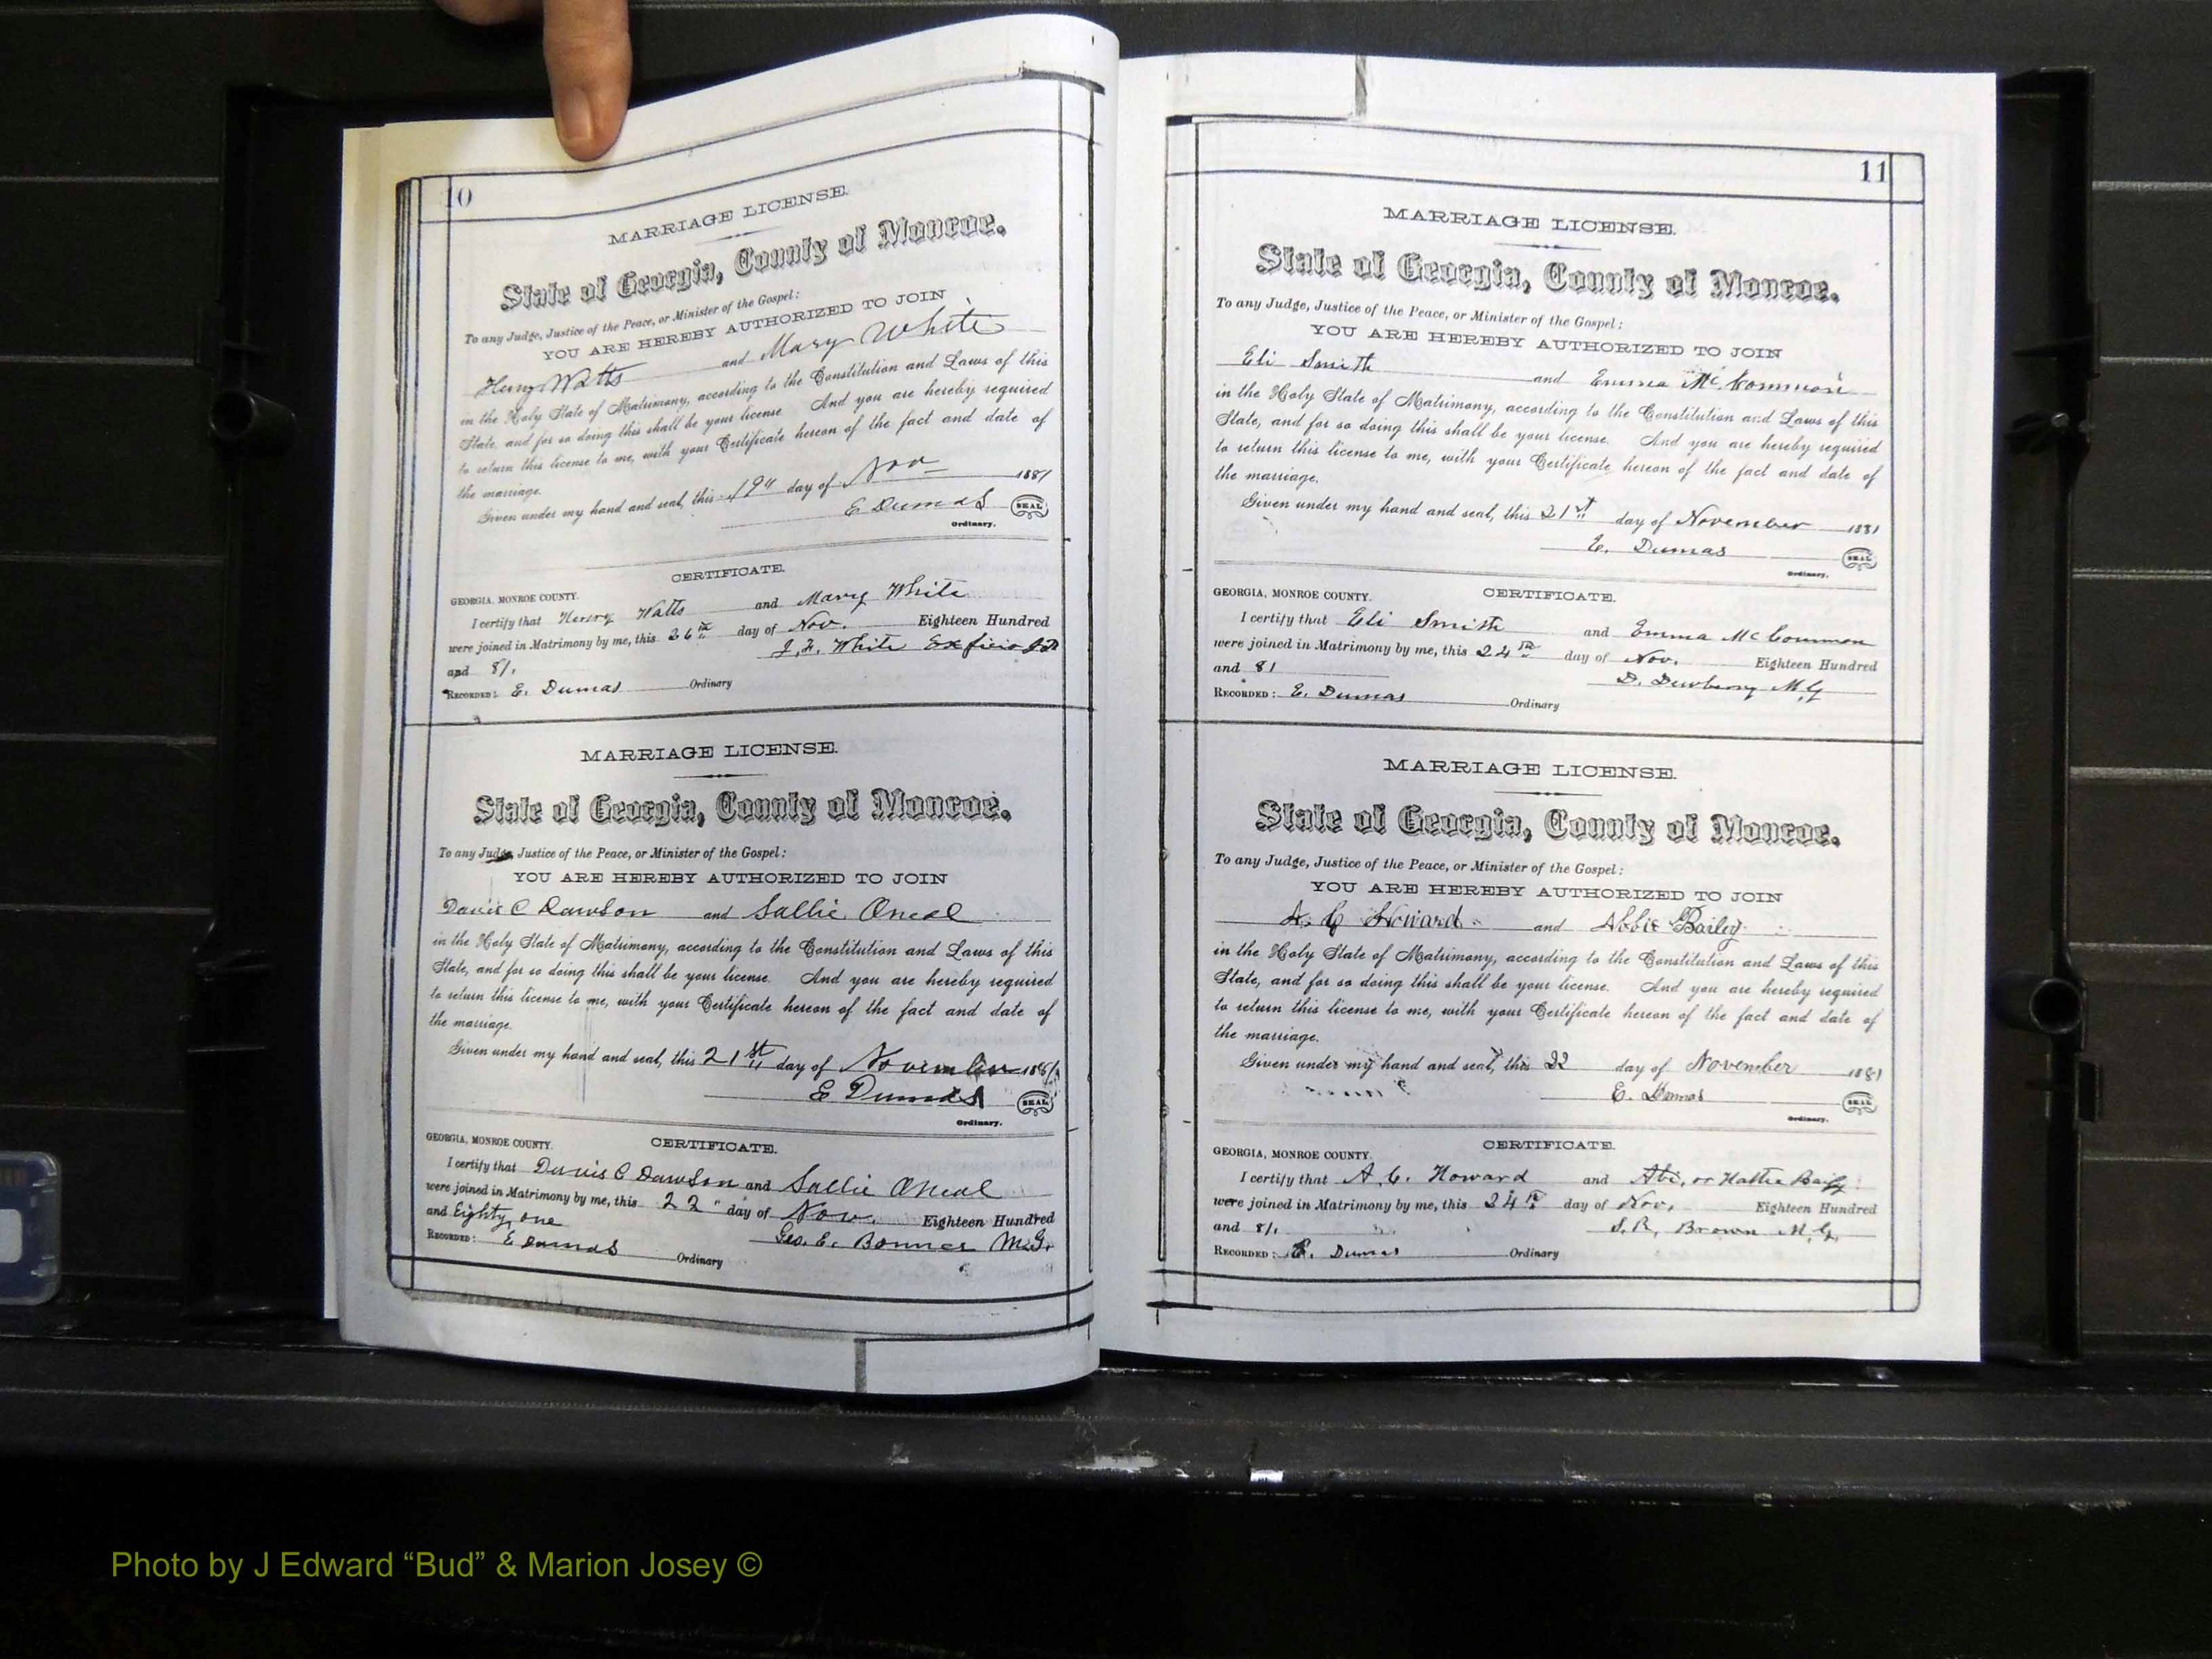 10
MARRIAGE LICENSE.
State of Georgia, County of Monroe.
To any Judge, Justice of the Peace, or Minister of the Gospel:
YOU ARE HEREBY AUTHORIZED TO JOIN
Henry Watts and Mary White
in the Holy State of Matrimony, according to the Constitution and Laws of this
State, and for so doing this shall be your license. And you are hereby required
to return this license to me, with your Certificate hereon of the fact and date of
the marriage.
Given under my hand and seal, this 19" day of Nov 1881
E Dumas SEAL
Ordinary.
CERTIFICATE.
GEORGIA, MONROE COUNTY.
I certify that Henry Watts and Mary White
were joined in Matrimony by me, this 26th day of Nov. Eighteen Hundred
and 81. J. F. White Exficio JP
RECORDED: E. Dumas Ordinary
MARRIAGE LICENSE.
State of Georgia, County of Monroe.
To any Judge, Justice of the Peace, or Minister of the Gospel:
YOU ARE HEREBY AUTHORIZED TO JOIN
Davis C Dawson and Sallie Oneal
in the Holy State of Matrimony, according to the Constitution and Laws of this
State, and for so doing this shall be your license. And you are hereby required
to return this license to me, with your Certificate hereon of the fact and date of
the marriage.
Given under my hand and seal, this 21st day of November 1881
E Dumas SEAL
Ordinary.
GEORGIA, MONROE COUNTY. CERTIFICATE.
I certify that Davis C Dawson and Sallie Oneal
were joined in Matrimony by me, this 22" day of Nov. Eighteen Hundred
and Eighty one Geo. E. Bonner M.G.
RECORDED: E Dumas Ordinary
11
MARRIAGE LICENSE.
State of Georgia, County of Monroe.
To any Judge, Justice of the Peace, or Minister of the Gospel:
YOU ARE HEREBY AUTHORIZED TO JOIN
Eli Smith and Emma McCommon
in the Holy State of Matrimony, according to the Constitution and Laws of this
State, and for so doing this shall be your license. And you are hereby required
to return this license to me, with your Certificate hereon of the fact and date of
the marriage.
Given under my hand and seal, this 21st day of November 1881
E. Dumas SEAL
Ordinary.
GEORGIA, MONROE COUNTY. CERTIFICATE.
I certify that Eli Smith and Emma McCommon
were joined in Matrimony by me, this 24th day of Nov. Eighteen Hundred
and 81 D. Dewberry M.G
RECORDED: E. Dumas Ordinary
MARRIAGE LICENSE.
State of Georgia, County of Monroe.
To any Judge, Justice of the Peace, or Minister of the Gospel:
YOU ARE HEREBY AUTHORIZED TO JOIN
A. C Howard and Abbie Bailey
in the Holy State of Matrimony, according to the Constitution and Laws of this
State, and for so doing this shall be your license. And you are hereby required
to return this license to me, with your Certificate hereon of the fact and date of
the marriage.
Given under my hand and seal, this 22 day of November 1881
E. Dumas SEAL
Ordinary.
GEORGIA, MONROE COUNTY. CERTIFICATE.
I certify that A. C. Howard and Abi, or Hattie Baily
were joined in Matrimony by me, this 24th day of Nov. Eighteen Hundred
and 81. S. R. Brown M.G.
RECORDED: E. Dumas Ordinary
Photo by J Edward “Bud” & Marion Josey ©